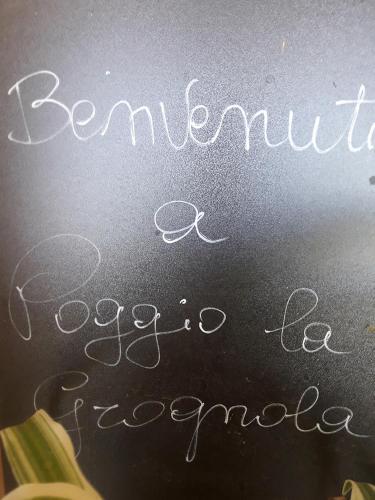 Benvenut
a
Poggio la
Grognola